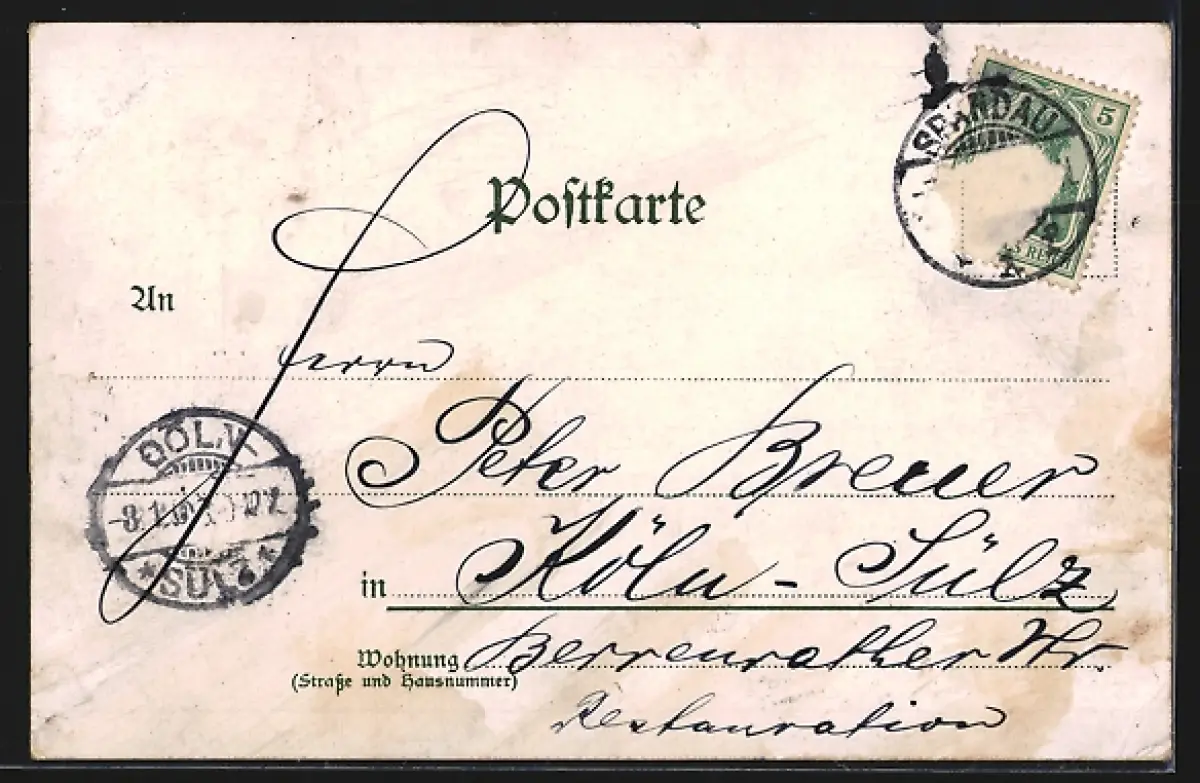 Postkarte
SPANDAU
5
REICH
An
Herrn
Peter Breuer
in Köln - Sülz
Wohnung Berrenrather Str.
(Straße und Hausnummer)
Restauration
CÖLN
SÜLZ